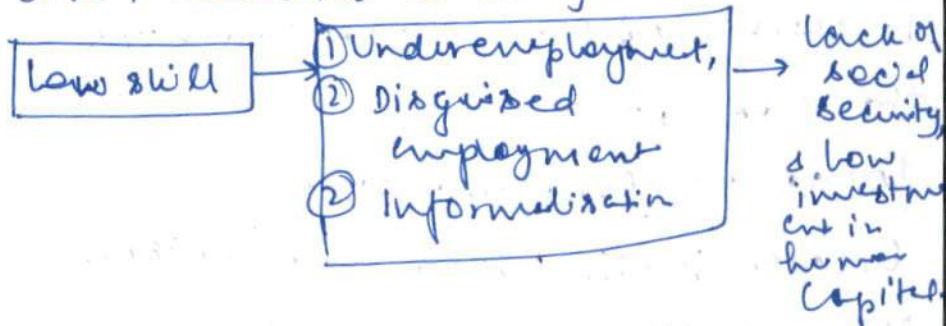 Low skill
① Underemployment,
② Disguised
employment
② Informalisation
lack of
social
security,
& low
investm
ent in
human
capital.